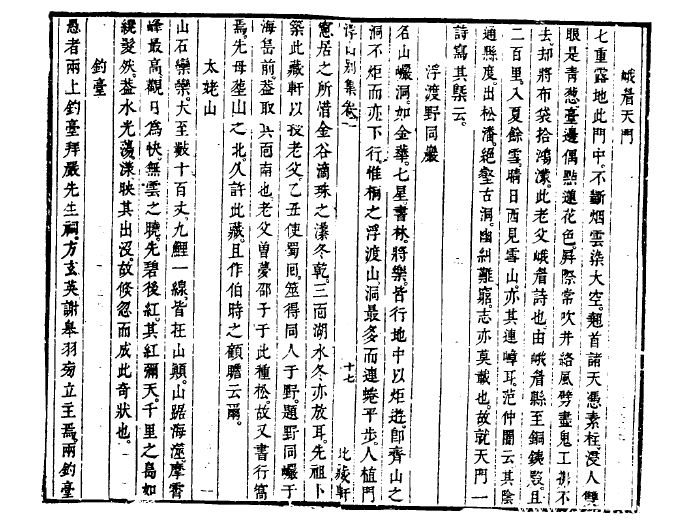 峨眉天門
七重露地此門中不斷烟雲染大空翹首諸天憑素柱浸人雙
眼是青葱臺邊偶點蓮花色屛際常吹井絡風劈盡鬼工拂不
去却將布袋拾鴻濛此老父峨眉詩也由峨眉縣至銅鐵殿且
二百里入夏餘雪晴日西見雪山亦其連嶂耳范仲闇云其陰
通縣度出松潘絕壑古洞幽糾難窮志亦莫載也故就天門一
詩寫其槩云
浮渡野同巖
名山巖洞如金華七星書林將樂皆行地中以炬遊卽齊山之
洞不炬而亦下行惟桐之浮渡山洞最多而連蜷平步人植門
浮山别集卷一
十七
此藏軒
憲居之所惜金谷滴珠之瀑冬乾三面湖水冬亦放耳先祖卜
築此藏軒以葬老父乙丑使蜀囘筮得同人于野題野同巖于
海島前葢取其面南也老父曾夢邵子于此種松故又書行窩
焉先母塟山之北久許此藏且作伯時之顧瞻云爾
太姥山
山石欒欒大至數十百丈九鯉一線皆在山顚山踞海澨摩霄
峰最高觀日爲快無雲之曉先碧後紅其紅彌天千里之島如
綴髮然葢水光蕩漾映其出沒故倏忽而成此奇狀也
釣臺
愚者兩上釣臺拜嚴先生祠方玄英謝皋羽旁立主焉兩釣臺